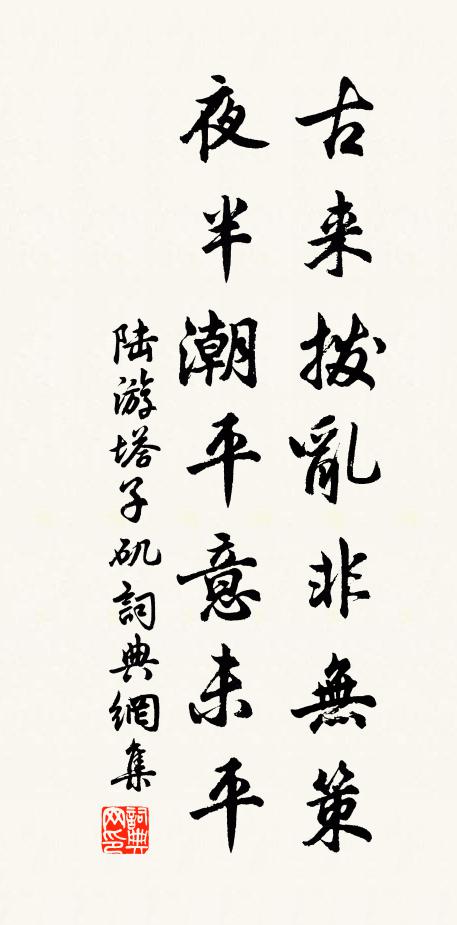 古来拨亂非無策
夜半潮平意未平
陆游塔子矶詞典網集
詞典
网印